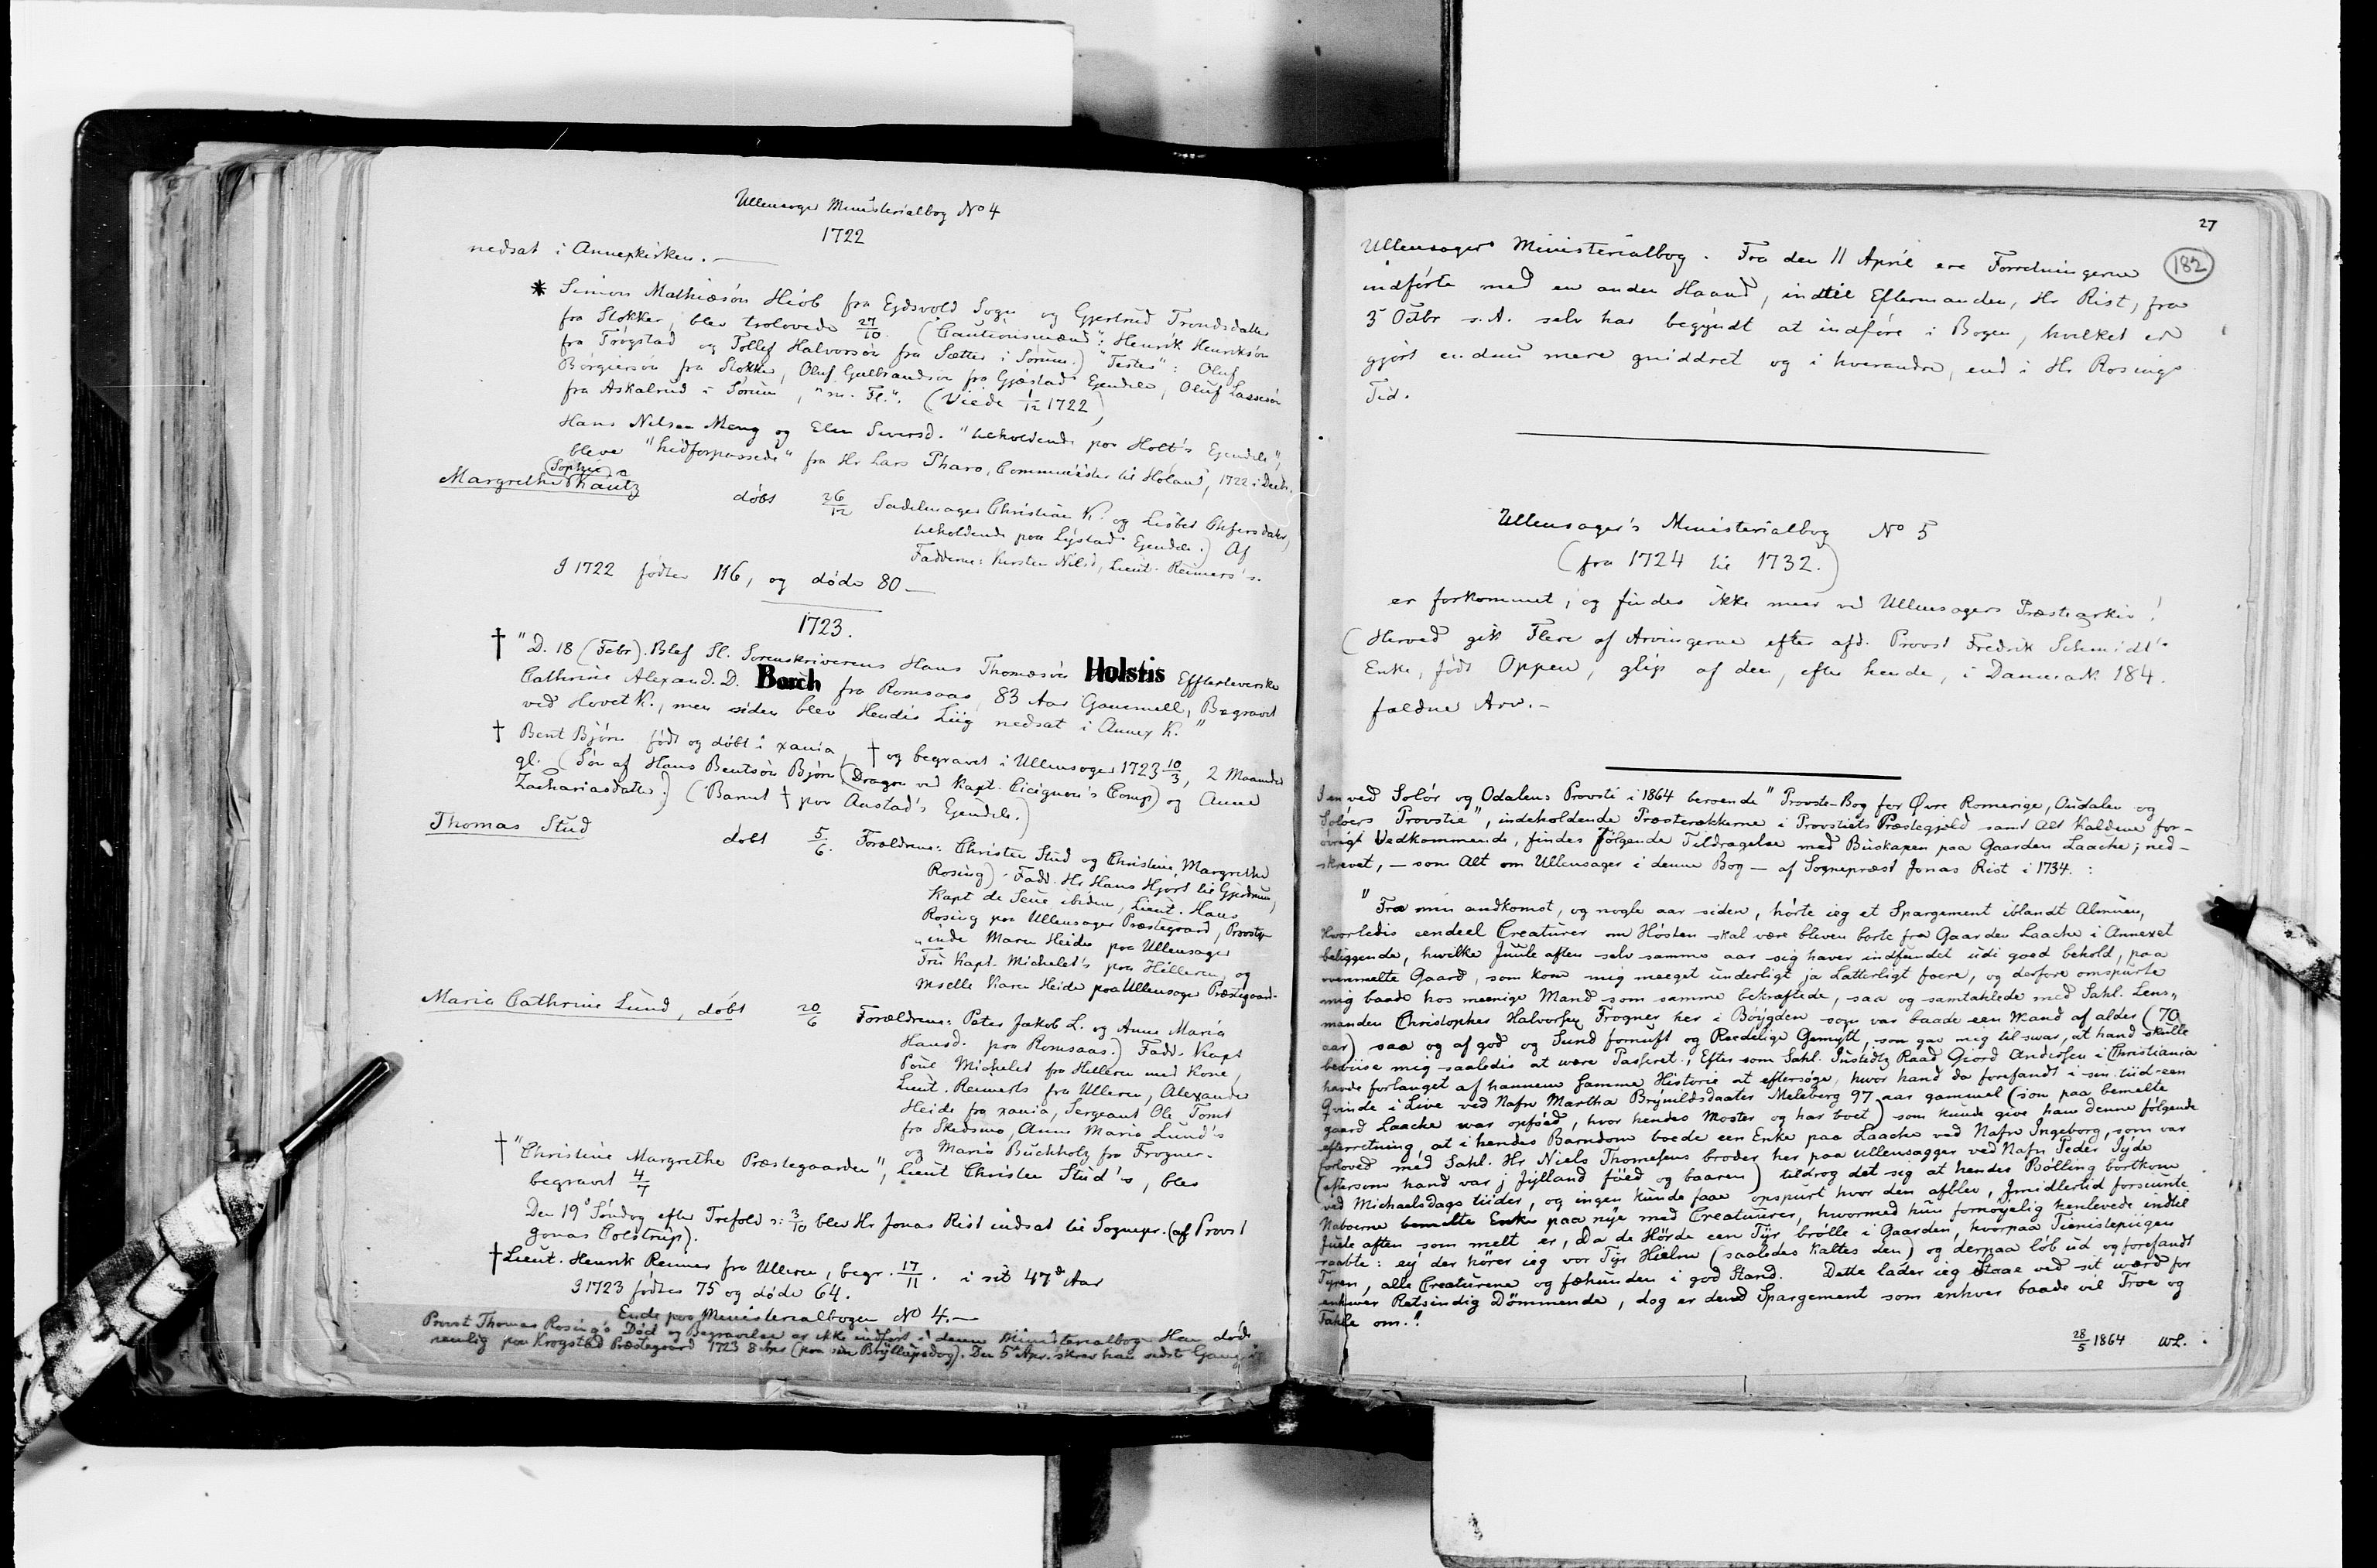 Ullensager Ministerialbog No 4
1722
nedsat i Annexkirken. —
* Simon Mathiæsön Hiob fra Ejdsvold Sogn og Gjertrud Trondsdatter
fra Slokker, blev trolovede 27/10. ("Cautionsmænd": Henrik Henriksön
fra Trögstad og Tollef Halvorsön fra Sætter i Sörum.) "Testes": Oluf
Börgiersön fra Slokker, Oluf Gulbrandsön fra Gjæstad Ejendele, Oluf Lassesön
fra Askalrud i Sörum, "m. Fl.". (Viede 1/12 1722)
Hans Nilsen Meng og Elen Siversd. "beholdende paa Holt's Ejendele",
bleve "hidforpassede" fra Hr Lars Tharo, Comministér til Höland, 1722 i Decbr.
Margrethe Sophie Kautz döbt 26/12 Sadelmager Christian K. og Lisbet
beholdende paa Lystad Ejendele.) Af
Fadderne: Kirsten Nilsd, Lieut. Reimers's.
I 1722 födtes 116, og döde 80 —
1723.
† "D. 18 (Febr). Blef Sl. Sorenskriverens Hans Thomæsön Holstis Effterleverske
Cathrine Alexand. D. Borch fra Romsaas, 83 Aar Gammell, Begravet
ved Hovet K., men siden blev Hendis Liig nedsat i Annex K."
† Bent Björn födt og döbt i xania, † og begravet i Ullensager 1723 10/3, 2 Maaneder
gl. (Sön af Hans Bentsön Björn (Dragon ved Kapt. Cicignon's Comp) og Anne
Zachariasdatter.) (Barnet † paa Austad's Ejendele.)
Thomas Stud döbt 5/6. Forældrene: Christen Stud og Christine Margrethe
Rosing). Fadd. Hr Hans Hjort til Gjerdrum,
Kapt de Seue ibidem, Lieut. Hans
Rosing paa Ullensager Præstegaard, Provste-
inde Maren Heide paa Ullensager
Fru Kapt. Michelet's paa Hilleren, og
Mselle Karen Heide paa Ullensager Præstegaard.
Maria Cathrine Lund, döbt 20/6 Forældrene: Peter Jakob L. og Anne Maria
Hansd. paa Romsaas.) Fadd. Kapt
Poul Michelet fra Hilleren med Kone,
Lieut. Reimerts fra Ulleren, Alexander
Heide fra xania, Sergeant Ole Tomt
fra Skedsmo, Anne Maria Lund's
og Maria Buchholz fra Frogner.
† "Christine Margrethe Præstegaarden", Lieut Christen Stud's, blev
begravet 4/7
Den 19d Söndag efter Trefold s: 3/10 blev Hr Jonas Rist indsat til Sognepr. (af Provst
Jonas Colstrup).
† Lieut. Henrik Reimer fra Ulleren, begr. 17/11. i sit 47d Aar
I 1723 födtes 75 og döde 64.
Ende paa Ministerialbogen No 4. —
Provst Thomas Rosing's Död og Begravelse er ikke indfört i denne Ministerialbog. Han döde
nemlig paa Krogstad Præstegaard 1723 8 Apr (paa sin Bryllupsdag). Den 5t Apr. skrev han sidste Gang
27
182
Ullensagers Ministerialbog. Fra den 11 April ere Forretningerne
indförte med en anden Haand, indtil Eftermanden, Hr Rist, fra
3 Octbr s.A. selv har begyndt at indföre i Bogen, hvilket er
gjort endnu mere gniddret og i hverandre, end i Hr Rosings
Tid.
Ullensager's Ministerialbog No 5
(fra 1724 til 1732.)
er forkommet, og findes ikke meer ved Ullensagers Præstearkiv!
(Herved gik Flere af Arvingerne efter afd. Provst Fredrik Schmidt's
Enke, födt Oppen, glip af den, efter hende, i Danmark 184.
faldne Arv. —
I en ved Solör og Odalens Provsti i 1864 beroende "Provste-Bog for Övre Romerige, Oudalen og
Soloers Provstie", indeholdende Præsterækkerne i Provstiets Præstegjeld samt Alt Kaldene for-
övrigt Vedkommende, findes fölgende Tildragelse med Buskapen paa Gaarden Laache; ned-
skrevet, — som Alt om Ullensager i denne Bog — af Sognepræst Jonas Rist i 1734. :
"Fra min andkomst, og nogle aar siden, hörte ieg et Spargement iblandt Almuen,
hvorledis eendeel Creaturer om Hösten skal være bleven borte fra Gaarden Laache i Annexet
beliggende, hwilke Juule aften selv samme aar sig haver indfundet udi goed behold, paa
ovenmelte Gaard, som kom mig meeget underligt ja Latterligt foere, og derfore omspurte
mig baade hos meenige Mand som samme bekræftede, saa og samtahlede med Sahl. Lens-
manden Christopher Halvorsen Frogner her i Böygden som var baade een Mand af alder (70
aar) saa og af god og Sund fornuft og Reedelige Gemytt, som gav mig til swar, at hand skulle
beviise mig saaledis at være Passeret; Efter som Sahl. Justidtz Raad Giord Andersen i Christiania
havde forlanget af hannem samme Historie at eftersöge, hwor hand da forefandt i sin tiid een
Qvinde i Live ved Nafn Martha Brynildsdaater Meleberg 97 aar gammel (som paa bemelte
gaard Laache war opföed, hvor hendes Moster og har boet) som kunde give ham denne fölgende
efterretning, at i hendes Barndom boede een Enke paa Laache ved Nafn Ingeborg, som var
forloved med Sahl. Hr Niels Thomesens broder her paa Ullensagger ved Nafn Peder Jyde
(eftersom hand var j Jylland föed og baaren) tildrog det sig at hendes Bölling bortkom
ved Michaelsdags tiider, og ingen kunde faae opspurt hvor den afblev, Imidlertid forsiunte
Naboerne bemelte Enke paa nÿe med Creaturer, hwormed hun fornöyelig henlevede indtil
Juule aften som melt er, da de Hörde een Tÿr brölle i Gaarden, hvorpaa Tienistepiigen
raabte: eÿ der hörer ieg vor Tÿr Hielm (saaledes kaltes den) og derpaa löb ud og forefandt
Tyren, alle Creaturene og fæhunden i god Stand. Dette lader ieg Staae ved sit wærd for
enhwer Retsindig Dömmende, dog er dend Spargement som enhver baade vil Troe og
Tahle om."
28/5 1864 WL.